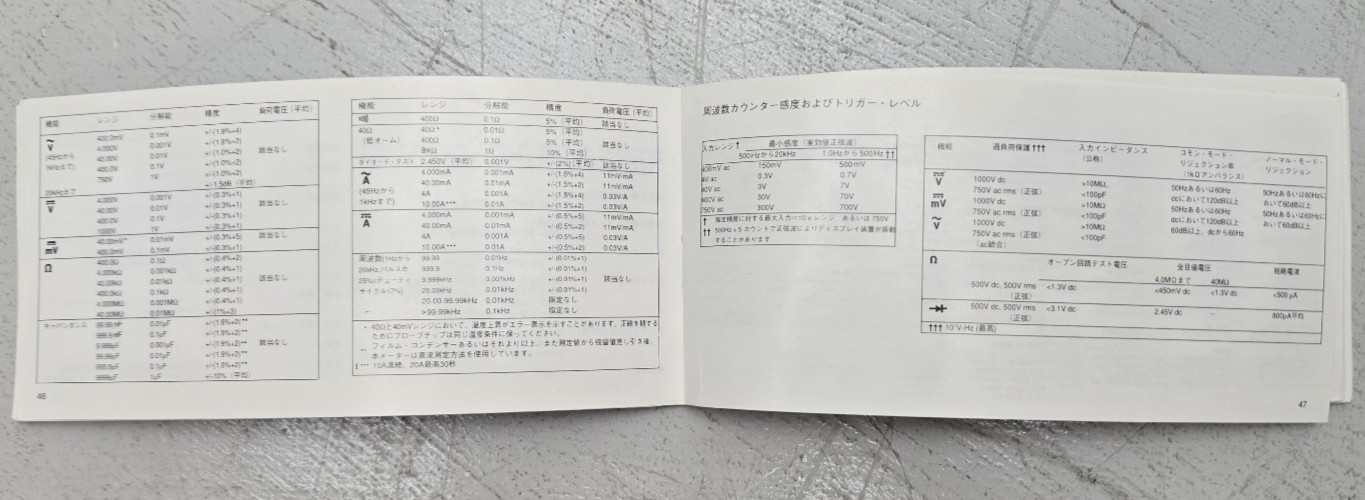 機能 レンジ 分解能 精度 負荷電圧 (平均)
~ 400.0mV 0.1mV +/-(1.9%+4)
V 4.000V 0.001V +/-(1.9%+2)
(45Hzから 40.00V 0.01V +/-(1.0%+2) 該当なし
1kHzまで) 400.0V 0.1V +/-(1.0%+2)
750V 1V +/-(1.0%+2)
20kHzまで +/-1.5dB (平均)
V 4.000V 0.001V +/-(0.3%+1)
40.00V 0.01V +/-(0.3%+1) 該当なし
400.0V 0.1V +/-(0.3%+1)
1000V 1V +/-(0.3%+1)
40.00mV* 0.01mV +/-(0.3%+5) 該当なし
mV 400.0mV 0.1mV +/-(0.3%+1)
Ω 400.0Ω 0.1Ω +/-(0.4%+2)
4.000kΩ 0.001kΩ +/-(0.4%+1)
40.00kΩ 0.01kΩ +/-(0.4%+1) 該当なし
400.0kΩ 0.1kΩ +/-(0.4%+1)
4.000MΩ 0.001MΩ +/-(0.4%+1)
40.00MΩ 0.01MΩ +/-(1%+3)
キャパシタンス 0.01μF +/-(1.9%+2)**
0.1μF +/-(1.9%+2)**
9.999μF 0.001μF +/-(1.9%+2)** 該当なし
99.99μF 0.01μF +/-(1.9%+2)**
999.9μF 0.1μF +/-(1.9%+2)**
9999μF 1μF +/-10% (平均)
46
機能 レンジ 分解能 精度 負荷電圧 (平均)
400Ω 0.1Ω 5% (平均) 該当なし
40Ω 400Ω* 0.01Ω 5% (平均)
(低オーム) 400Ω 0.1Ω 5% (平均) 該当なし
8KΩ 1Ω 10% (平均)
ダイオード・テスト 2.450V (平均) 0.001V +/-(2%)(平均) 該当なし
~ 4.000mA 0.001mA +/-(1.5%+4) 11mV/mA
A 40.00mA 0.01mA +/-(1.5%+2) 11mV/mA
(45Hzから 4A 0.001A +/-(1.5%+4) 0.03V/A
1kHzまで) 10.00A*** 0.01A +/-(1.5%+2) 0.03V/A
4.000mA 0.001mA +/-(0.5%+5) 11mV/mA
A 40.00mA 0.01mA +/-(0.5%+2) 11mV/mA
4A 0.001A +/-(0.5%+5) 0.03V/A
10.00A*** 0.01A +/-(0.5%+2) 0.03V/A
周波数(1Hzから 99.99 0.01Hz +/-(0.01%+1)
20kHz,パルス巾 999.9 0.1Hz +/-(0.01%+1)
25%<デューティ 9.999kHz 0.001kHz +/-(0.01%+1) 該当なし
サイクル<7%) 20.00kHz 0.01kHz +/-(0.01%+1)
20.00-99.99kHz 0.01kHz 指定なし
- >99.99kHz 0.1kHz 指定なし
* 40Ωと40mVレンジにおいて、温度上昇がエラー表示を示すことがあります。正確を期する
ためにプローブチップは同じ温度条件に保ってください。
** フィルム・コンデンサーあるいはそれより以上、また測定値から残留値差し引き後、
本メーターは直流測定方法を使用しています。
*** 10A連続、20A最高30秒
周波数カウンター感度およびトリガー・レベル
入力レンジ† 最小感度 (実効値正弦波)
500Hzから20kHz 1.0Hzから500Hz††
400mV ac 150mV 500mV
4V ac 0.3V 0.7V
40V ac 3V 7V
400V ac 30V 70V
750V ac 300V 700V
† 指定精度に対する最大入力=10×レンジ あるいは750V
†† 500Hz+5カウントで正弦波によりディスプレイ装置が振動
することがあります
機能 過負荷保護††† 入力インピーダンス コモン・モード・ ノーマル・モード・
(公称) リジェクション率 リジェクション
(1kΩアンバランス)
V 1000V dc >10MΩ 50Hzあるいは60Hz 50Hzあるいは60Hzに
750V ac rms (正弦) <100pF dcにおいて120dB以上 おいて60dB以上
mV 1000V dc >10MΩ 50Hzあるいは60Hz 50Hzあるいは60Hzに
750V ac rms (正弦) <100pF dcにおいて120dB以上 おいて60dB以上
~ 1000V dc >10MΩ 60dB以上、dcから60Hz
V 750V ac rms (正弦) <100pF
(ac結合)
Ω オープン回路テスト電圧 全目盛電圧 短絡電流
4.0MΩまで 40MΩ
500V dc, 500V rms <1.3V dc <450mV dc <1.3V dc <500μA
(正弦)
500V dc, 500V rms <3.1V dc 2.45V dc - 800μA平均
(正弦)
††† 10⁷V-Hz (最高)
47